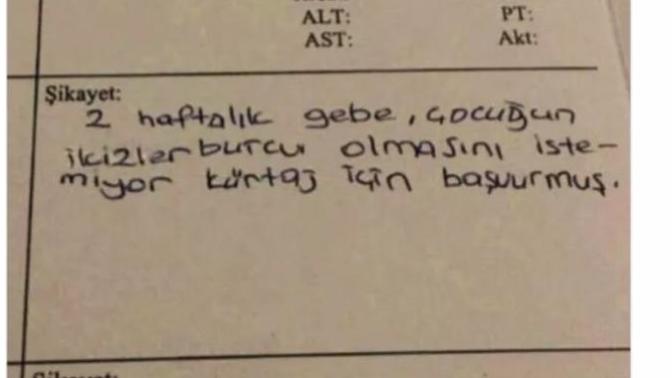 ALT: PT:
AST: Akt:
Şikayet:
2 haftalık gebe, çocuğun
ikizler burcu olmasını iste-
miyor kürtaj için başvurmuş.